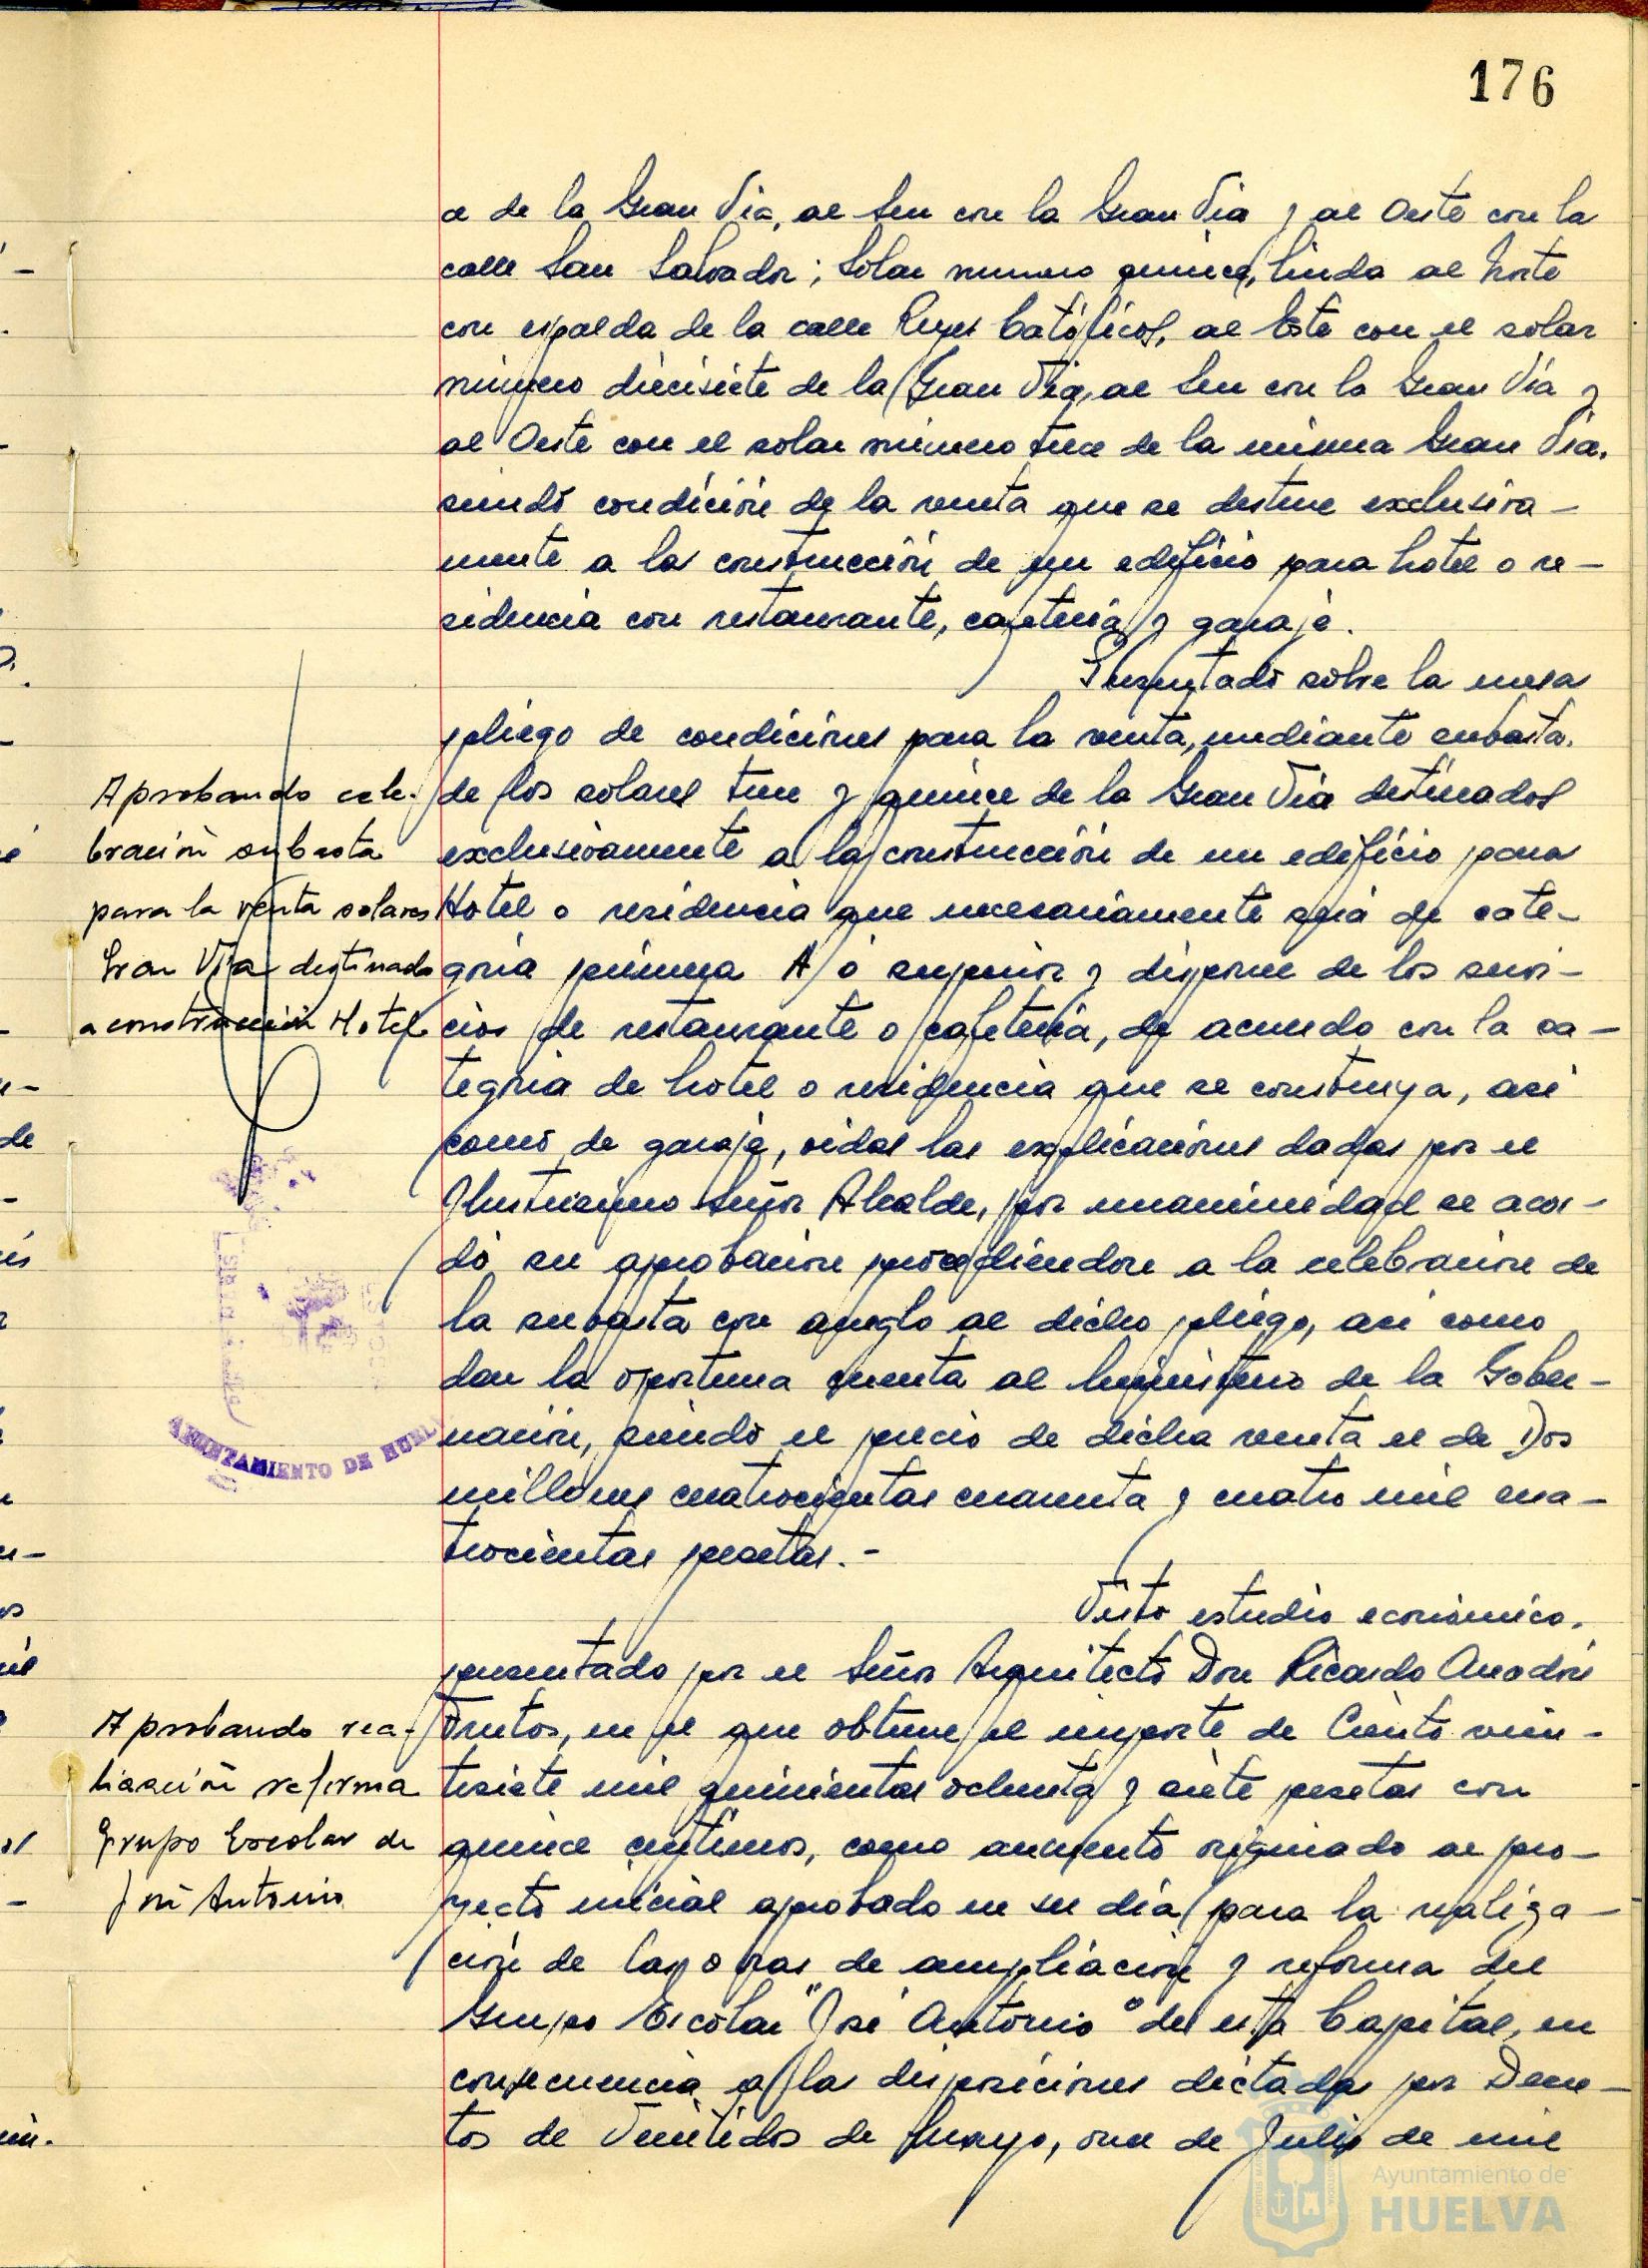 176
ce de la Gran Via, al Sur con la Gran Via y al Oeste con la
calle San Salvador; Solar numero quince, linda al Norte
con espalda de la calle Reyes Católicos, al Este con el solar
número diecisiete de la Gran Via, al Sur con la Gran Via y
al Oeste con el solar número trece de la misma Gran Via.
siendo condición de la venta que se destine exclusiva-
mente a la construcción de un edificio para hotel o re-
sidencia con restaurante, cafeteria y garaje.
Presentado sobre la mesa
pliego de condiciones para la venta, mediante subasta,
de los solares trece y quince de la Gran Via destinados
exclusivamente a la construcción de un edificio para
Hotel o residencia que necesariamente será de cate-
goria primera A ó superior y dispone de los servi-
cios de restaurante o cafeteria, de acuerdo con la ca-
tegoria de hotel o residencia que se construya, asi
como de garaje, oidas las explicaciones dadas por el
Ilustrisimo Señor Alcalde, por unanimidad se acor-
dó su aprobacion procediendose a la celebracion de
la subasta con areglo al dicho pliego, asi como
dar la oportuna cuenta al Ministerio de la Gober-
nación, siendo el precio de dicha venta el de Dos
millones cuatrocientas cuarenta y cuatro mil cua-
trocientas pesetas.-
Aprobando cele-
bración subasta
para la venta solares
Gran Via destinado
a construcción Hotel
AYUNTAMIENTO DE HUEL
Visto estudio económico,
presentado por el Señor Arquitecto Don Ricardo Anadón
Frutos, en el que obtiene el importe de Ciento vein-
tisiete mil quinientas ochenta y siete pesetas con
quince centimos, como aumento originado al pro-
yecto inicial aprobado en su día para la realiza-
ción de las obras de ampliación y reforma del
Grupo Escolar "José Antonio" de esta Capital, en
consecuencia a las disposiciones dictadas por Decre-
tos de Veintidos de Mayo, once de Julio de mil
Aprobando rea-
lización reforma
Grupo Escolar de
José Antonio
Ayuntamiento de
HUELVA